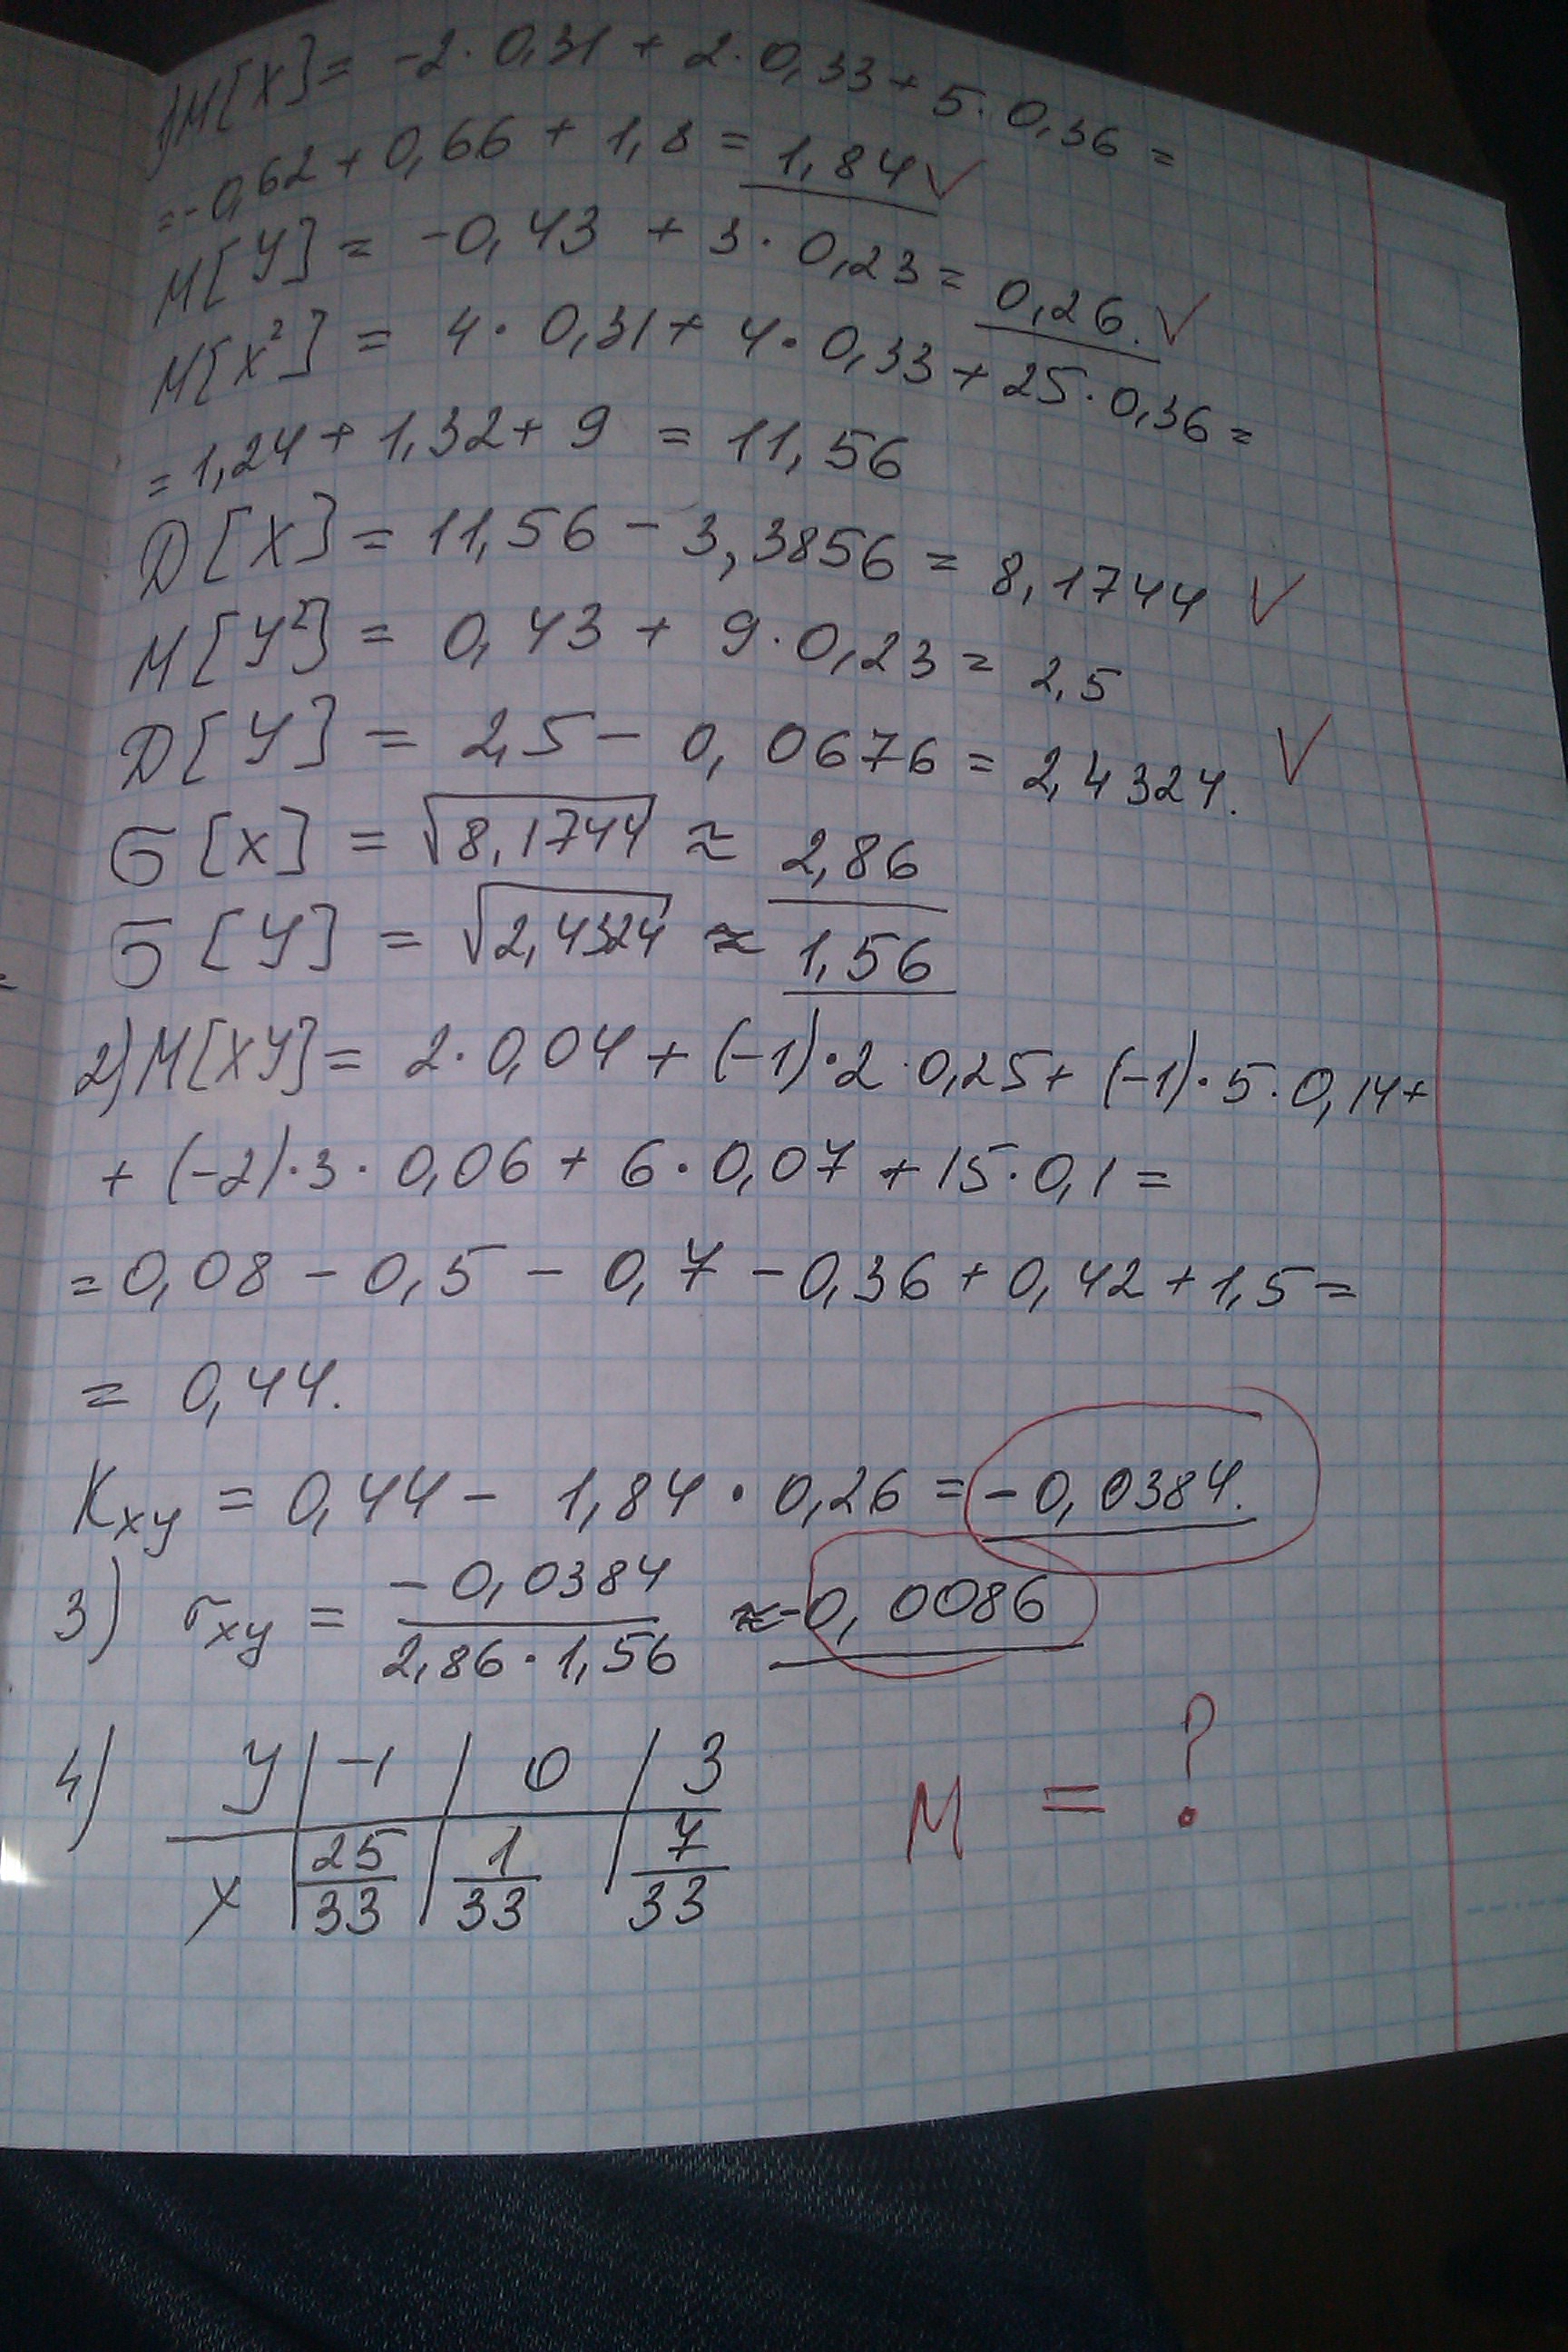 1) M[X] = -2·0,31 + 2·0,33 + 5·0,36 =
= -0,62 + 0,66 + 1,8 = 1,84 ✓
M[Y] = -0,43 + 3·0,23 = 0,26. ✓
M[X²] = 4·0,31 + 4·0,33 + 25·0,36 =
= 1,24 + 1,32 + 9 = 11,56
D[X] = 11,56 - 3,3856 = 8,1744 ✓
M[Y²] = 0,43 + 9·0,23 = 2,5
D[Y] = 2,5 - 0,0676 = 2,4324. ✓
σ[X] = √8,1744 ≈ 2,86
σ[Y] = √2,4324 ≈ 1,56
2) M[XY] = 2·0,04 + (-1)·2·0,25 + (-1)·5·0,14 +
+ (-2)·3·0,06 + 6·0,07 + 15·0,1 =
= 0,08 - 0,5 - 0,7 - 0,36 + 0,42 + 1,5 =
= 0,44.
Kxy = 0,44 - 1,84·0,26 = -0,0384.
3) rxy = -0,0384 / 2,86·1,56 ≈ -0,0086
4) Y | -1 | 0 | 3
X | 25/33 | 1/33 | 7/33
M = ?